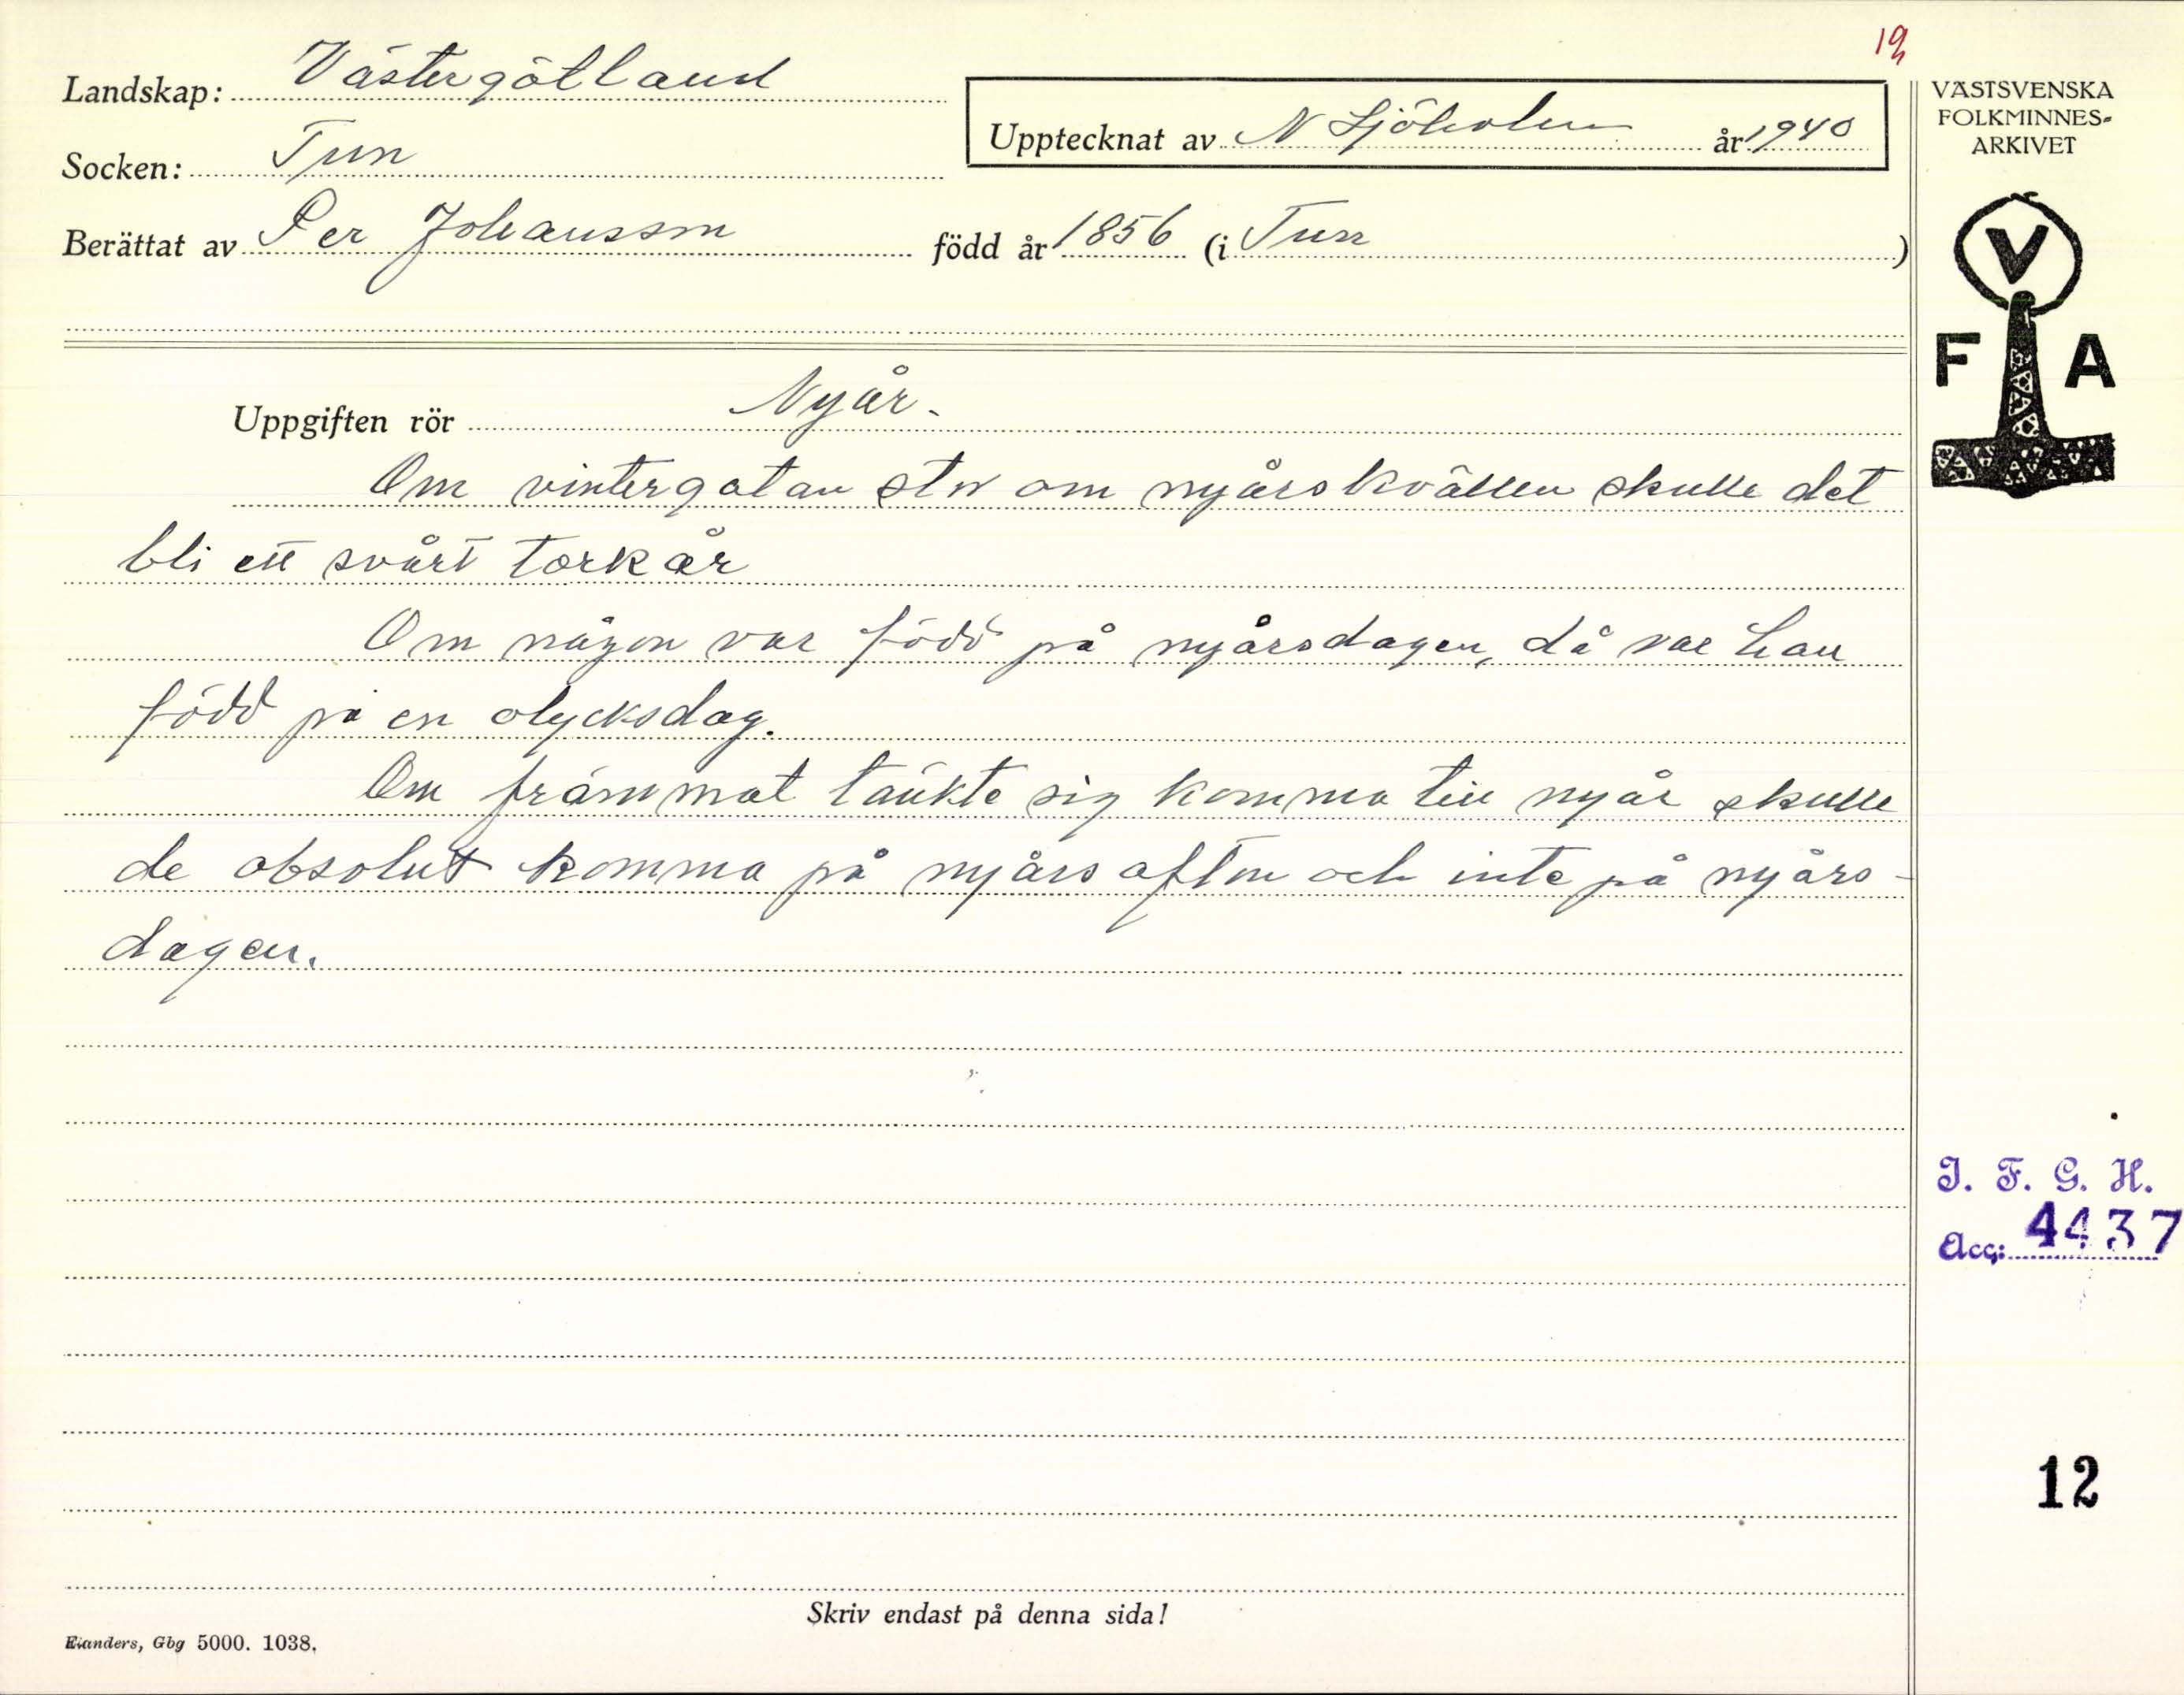 19
Landskap: Västergötland
Upptecknat av N Sjöholm år 1940
Socken: Tun
Berättat av Per Johansson född år 1856 (i Tun )
VÄSTSVENSKA
FOLKMINNES-
ARKIVET
V
F A
Uppgiften rör Nyår.
Om vintergatan om nyårskvällen skulle det
bli ett svårt torkår
Om någon var född på nyårsdagen, då var han
född på en olycksdag.
Om främmat tänkte sig komma till nyår skulle
de absolut komma på nyårsafton och inte på nyårs-
dagen.
I. F. G. H.
Acc: 4437
12
Skriv endast på denna sida!
Elanders, Gbg 5000. 1038.